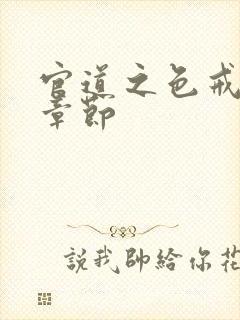 官道之色戒
章節
說我帥給你花